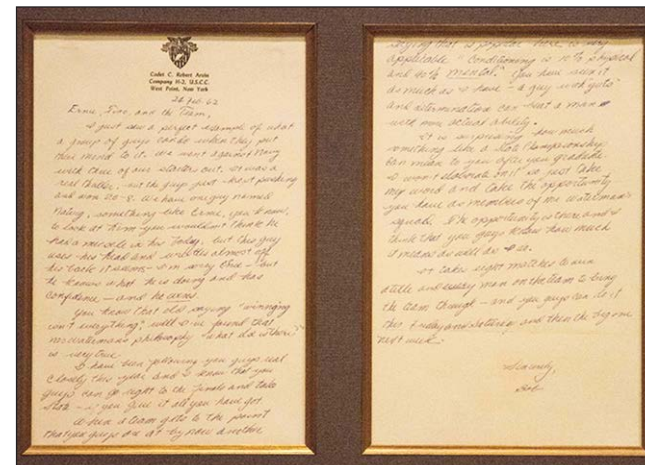 Cadet C. Robert Arvin
Company H-2, U.S.C.C.
West Point, New York
28 Feb. 62
Ernie, Tine, and the Team,
I just saw a perfect example of what
a group of guys can do when they put
their mind to it. We went against Navy
with three of our starters out. It was a
real battle, but the guys just kept pushing
and won 20-8. We have one guy named
something like Ernie, you know,
to look at him you wouldn't think he
has a muscle in his body, but this guy
uses his head and wrestles almost off
his back it seems — but
he knows what he is doing and has
confidence — and he wins.
You know that old saying "winning
isn't everything", well I've found that
philosophy "what else is there?"
is very true.
I have been following you guys real
closely this year and I know that you
guys can go right to the finals and take
state — if you give it all you have got
When a team gets to the point
that you guys are at by now another
saying that is popular here is very
applicable "Conditioning is 10% physical
and 90% mental." You have seen it
as much as I have — a guy with guts
and determination can beat a man
with more actual ability.
It is surprising how much
something like a State Championship
can mean to you after you graduate
I won't elaborate on it so just take
my word and take the opportunity
you have as members of
squad. The opportunity is there and I
think that you guys know how much
it means as well as I do.
It takes eight matches to win
a title and every man on the team to bring
the team through — and you guys can do it
this Friday and Saturday and then the big one
next week.
Sincerely,
Bob